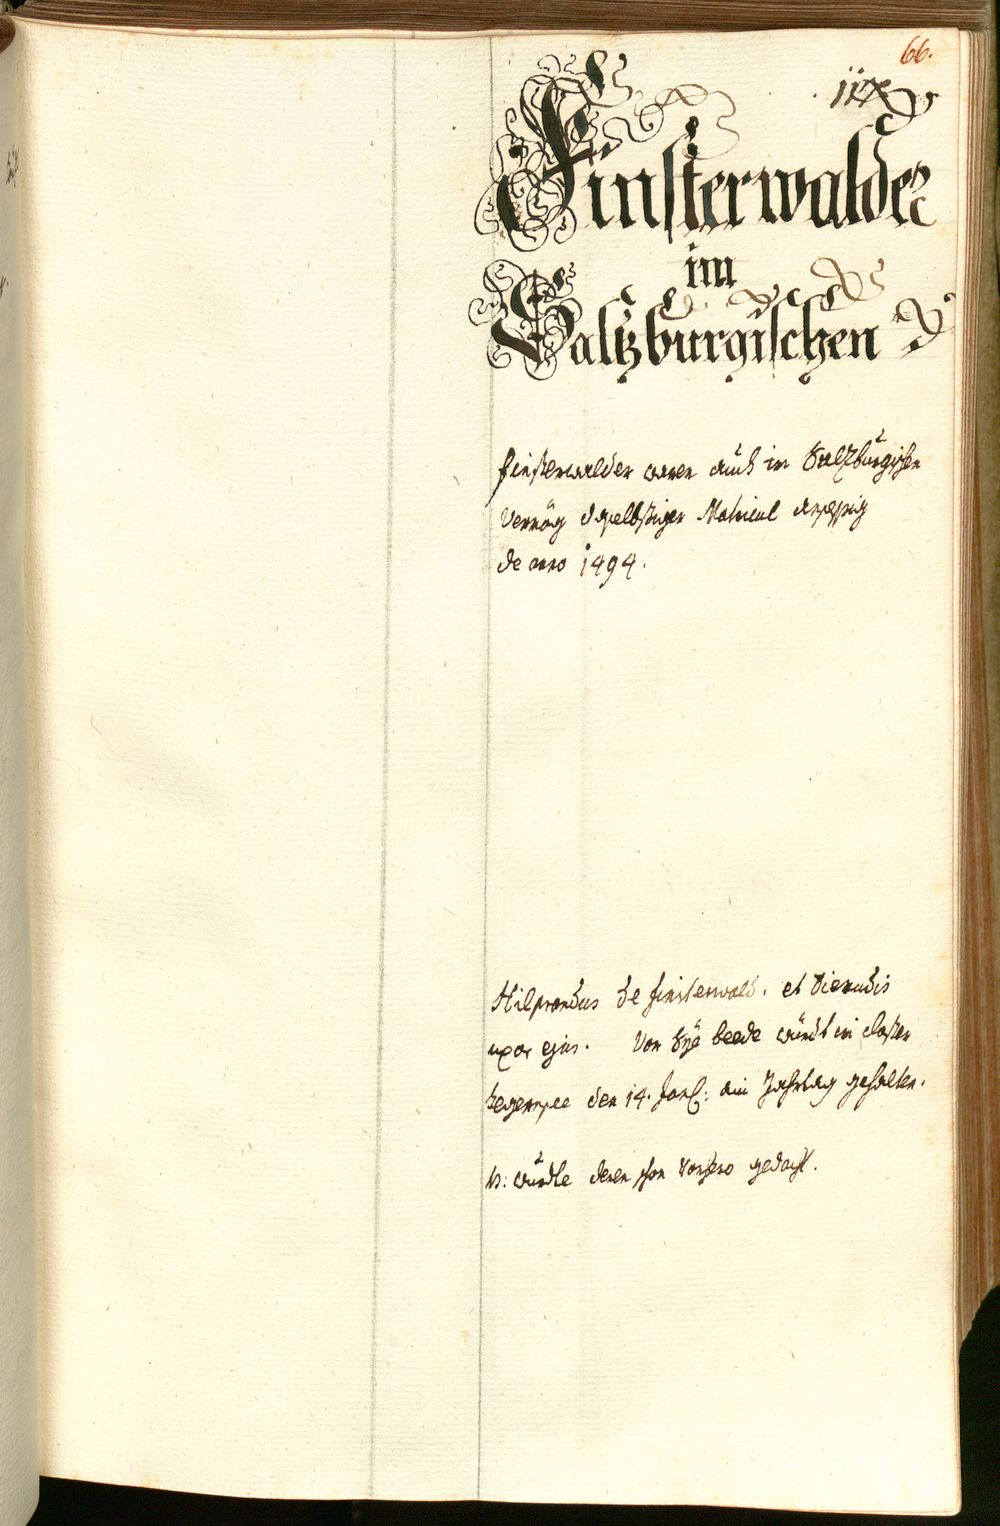 66.
Finsterwalder
im
Saltzburgischen
Finsterwalder waren auch im Saltzburgischen
Vermög daselbstiger Matricul ansessig
de anno 1494.
Hilprandus de Finsterwald. et Diemudis
uxor ejus. Von Sye beede würdt im closter
tegernsee den 14. ain Jahrtag gehalten.
N: würdte deren schon vorhero gedacht.